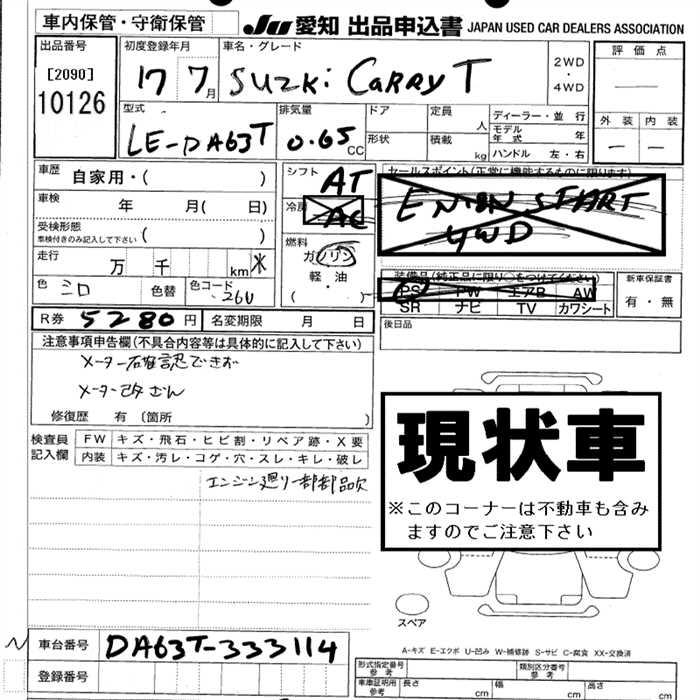 車内保管・守衛保管
JU 愛知 出品申込書 JAPAN USED CAR DEALERS ASSOCIATION
出品番号 初度登録年月 車名・グレード 2WD ・ 4WD 評価点
[2090] 17 7月 SUZKi CARRY T
10126
型式 排気量 ドア 定員 人 ディーラー・並行 外装 内装
LE-DA63T 0.65 CC 形状 積載 kg モデル年式 年
ハンドル 左・右
車歴 自家用・( ) シフト AT セールスポイント(正常に機能するものに限ります)
車検 年 月( 日) 冷房 AC ENJBN START
4WD
受検形態 車検付きのみ記入して下さい ( ) 燃料 ガソリン
走行 万 千 km 軽・油 装備品(純正品に限り○をつけてください) 新車保証書
色 シロ 色替 色コード 26U ( ) PS PW エアB AW 有・無
SR ナビ TV カワシート
R券 5280円 名変期限 月 日 後日品
注意事項申告欄(不具合内容等は具体的に記入して下さい)
メーター確認できず
メーター改ざん
修復歴 有 〔箇所 〕
現状車
※このコーナーは不動車も含み
ますのでご注意下さい
検査員記入欄 FW キズ・飛石・ヒビ割・リペア跡・X要
内装 キズ・汚レ・コゲ・穴・スレ・キレ・破レ
エンジン廻り一部部品欠
スペア
A-キズ E-エクボ U-凹み W-補修跡 S-サビ C-腐食 XX-交換済
車台番号 DA63T-333114
登録番号
形式指定番号 参考 類別区分番号 参考
車庫証明用 参考 長さ cm 幅 cm 高さ cm